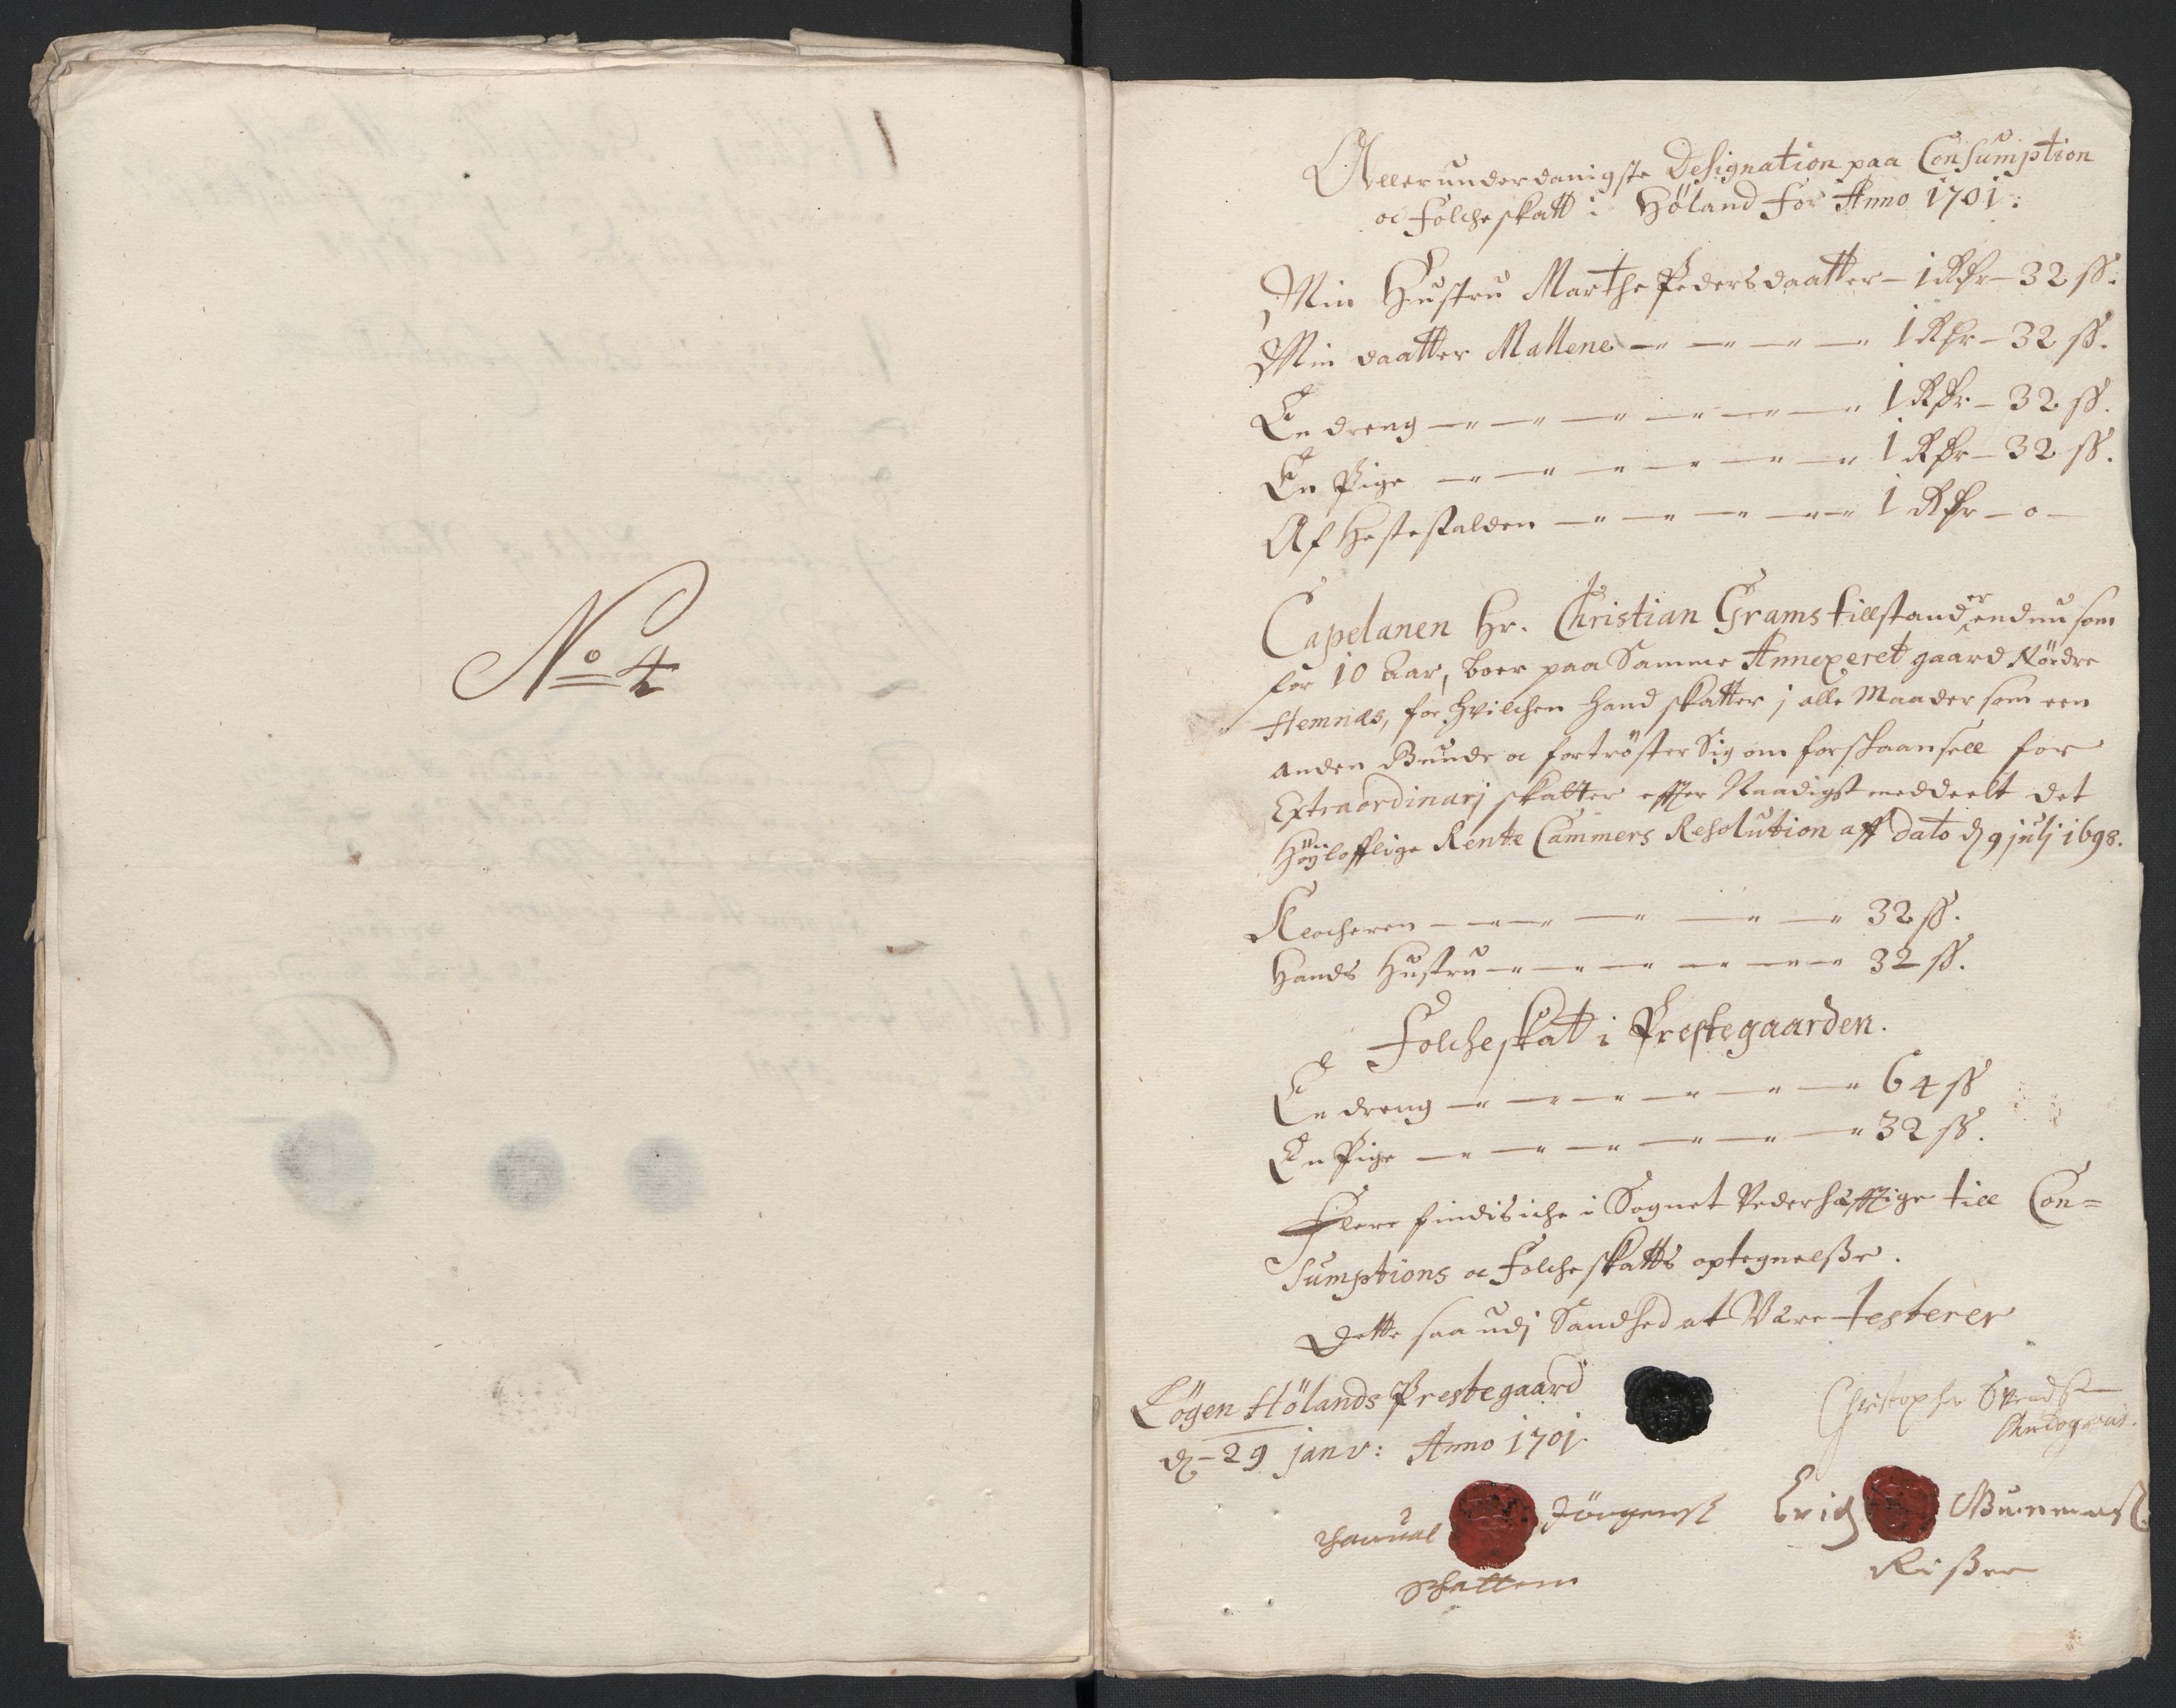 No 4
Allerunderdanigste Designation paa Consumption
oc Folcheskatt i Höland for Anno 1701:
Min Hustru Marthe Pedersdaatter - 1 Rdr - 32 ss.
Min daatter Mallene - 1 Rdr - 32 ss.
En dreng - 1 Rdr - 32 ss.
En Pige - 1 Rdr - 32 ss.
Af Hestestalden - 1 Rdr - 0 -
Capelanen Hr. Christian Grams tillstand er endnu som
for 10 Aar, boer paa Samme Annexeret gaard Nördre
Hemnæs, for hvilchen hand skatter j alle Maader som een
anden Bunde oc fortröster Sig om forskaansell for
Extraordinarj skatter effter Naadigst meddeelt det
Höylofflige Rente Cammers Resolution aff dato d 9 julj 1698.
Klocheren - 32 ss.
Hands Hustru - 32 ss.
Folcheskat i Prestegaarden.
En dreng - 64 ss
En Pige - 32 ss.
Flere findis iche i Sognet Vederhæfftige till Con=
Sumptions oc Folcheskatts optegnelsße.
Dette saa udj Sandhed at Være testerer
Lögen Hölands Prestegaard
d - 29 janv: Anno 1701.
Christopher Svends
Erich
Rißer